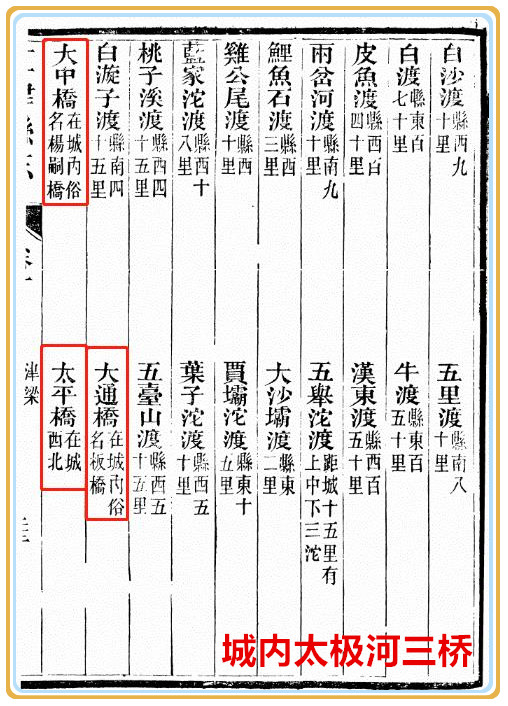 白沙渡縣西九十里 五里渡縣南八十里
白渡縣東百七十里 牛渡縣東百五十里
皮魚渡縣西百四十里 漢東渡縣西百五十里
兩岔河渡縣南九十里 五舉沱渡距城十五里有上中下三沱
鯉魚石渡縣西三里 大沙壩渡縣東二里
雞公尾渡縣西十里 賈壩沱渡縣東十五里
藍家沱渡縣西十八里 葉子沱渡縣西五十里
桃子溪渡縣西四十五里 五臺山渡縣西五十五里
白漩子渡縣南四十五里 大通橋在城內俗名板橋
大中橋在城內俗名楊嗣橋 太平橋在城西北
津梁
城内太极河三桥